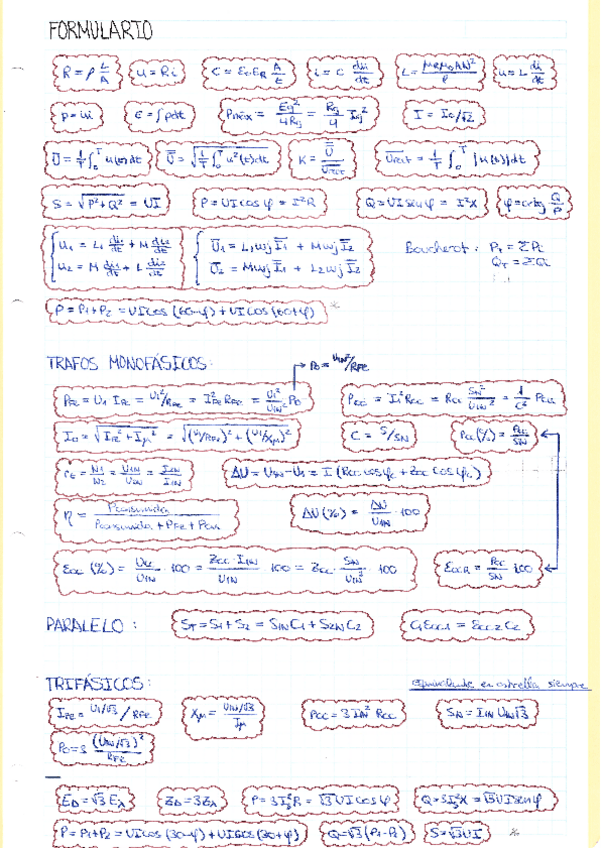 FORMULARIO
R = ρ L/A   u = R i   C = ε₀ εR A/t   i = C du/dt   L = μR μ₀ A N²/l   u = L di/dt
p = ui   E = ∫ p dt   Pmáx = Eg²/4Rg = Rg/4 Ig²   I = I₀/√2
U̅ = 1/T ∫₀ᵀ u(t) dt   U̿ = √(1/T ∫₀ᵀ u²(t) dt)   = 1/T ∫₀ᵀ |u(t)| dt
S = √(P²+Q²) = UI   P = UI cos φ = I²R   Q = UI sen φ = I²X   φ = arctg Q/P
u₁ = L₁ di₁/dt + M di₂/dt   U̅₁ = L₁ωj I̅₁ + Mωj I̅₂   Boucherot: PT = ΣPi
u₂ = M di₁/dt + L di₂/dt   U̅₂ = Mωj I̅₁ + L₂ωj I̅₂   QT = ΣQi
P = P₁+P₂ = UI cos (30-φ) + UI cos (30+φ) *
TRAFOS MONOFÁSICOS:   P₀ = U₁N²/RFe
PFe = U₁ IFe = U₁²/RFe = IFe² RFe = U₁²/U₁N² P₀
I₀ = √(IFe² + Iμ²) = √((U₁/RFe)² + (U₁/Xμ)²)   C = S/SN   Pcc(%) = Pcc/SN
rt = N₁/N₂ = U₁N/U₂N = I₂N/I₁N
η = Pconsumida / Pconsumida + PFe + PCu   ΔU(%) = ΔU/U₁N · 100
εcc (%) = Ucc/U₁N · 100 = Zcc · I₁N/U₁N · 100 = Zcc · SN/U₁N² · 100   εccR = Pcc/SN · 100
PARALELO:   ST = S₁ + S₂ = S₁N C₁ + S₂N C₂   C₁ εcc1 = εcc2 C₂
TRIFÁSICOS:   equivalente en estrella siempre
IFe = U₁/√3 / RFe   Xμ = U₁N/√3 / Iμ   Pcc = 3 I₁N² Rcc   SN = I₁N U₁N √3
P₀ = 3 (U₁N/√3)² / RFe
EΔ = √3 Eλ   ZΔ = 3Zλ   P = 3If²R = √3 UI cos φ   Q = 3If²X = √3 UI sen φ
P = P₁+P₂ = UI cos (30-φ) + UI cos (30+φ)   Q = √3 (P₁-P₂)   S = √3 UI